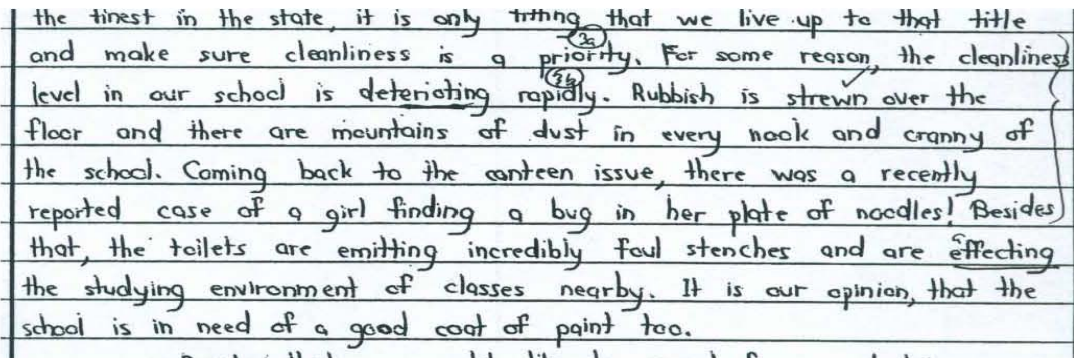 the finest in the state, it is only fitting that we live up to that title
and make sure cleanliness is a priority. For some reason, the cleanliness
level in our school is deterioting rapidly. Rubbish is strewn over the
floor and there are mountains of dust in every nook and cranny of
the school. Coming back to the canteen issue, there was a recently
reported case of a girl finding a bug in her plate of noodles! Besides
that, the toilets are emitting incredibly foul stenches and are effecting
the studying environment of classes nearby. It is our opinion, that the
school is in need of a good coat of paint too.